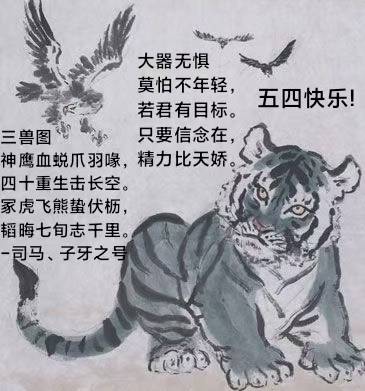 三兽图
神鹰血蜕爪羽喙，
四十重生击长空。
冢虎飞熊蛰伏枥，
韬晦七旬志千里。
-司马、子牙之号
大器无惧
莫怕不年轻，
若君有目标。
只要信念在，
精力比天娇。
五四快乐!